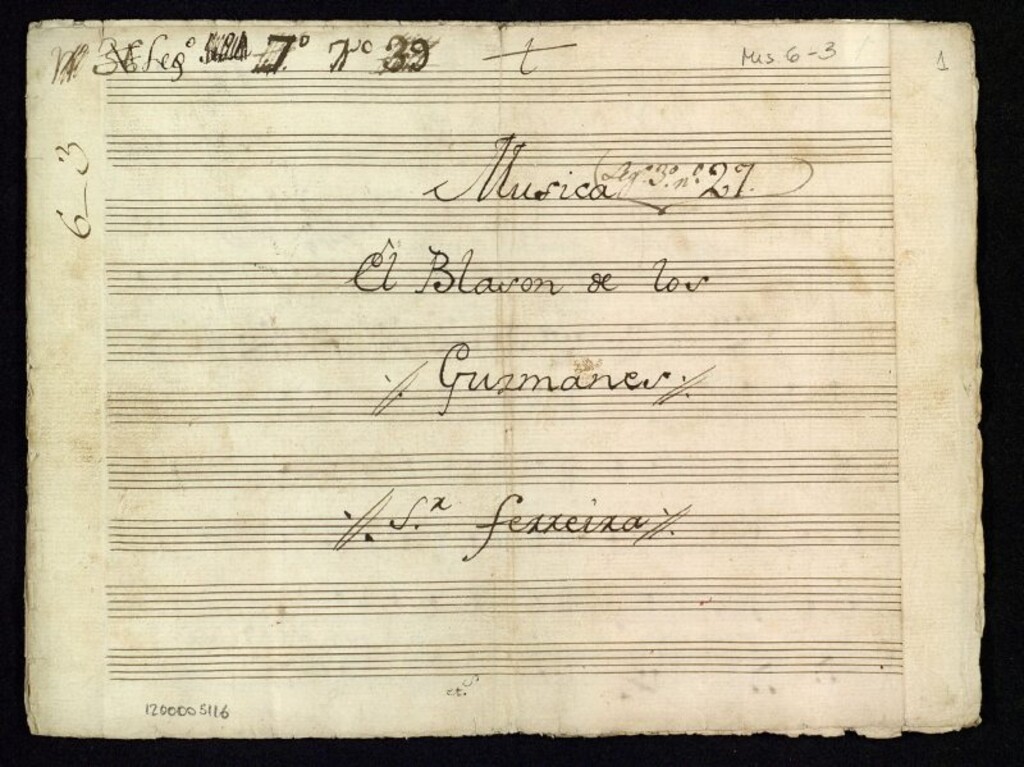 Leg.º 7º nº 39 Mus 6-3 1
6-3
Musica Leg.º 3.º n.º 27.
El Blason de los
Guzmanes.
S.r Ferreira
1200005116